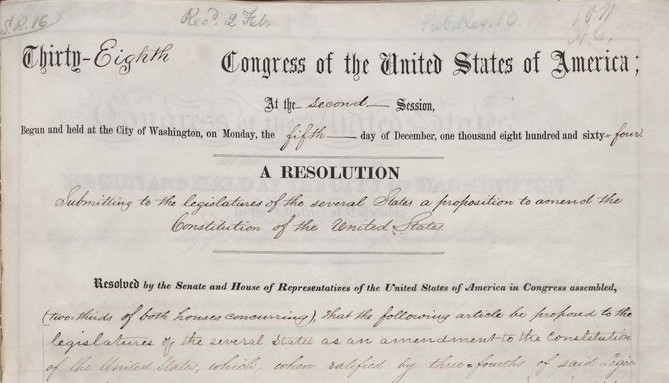 S.R. 16
Rec'd. 2 Feb.
Pub. Res. 10
Thirty-Eighth Congress of the United States of America;
At the second Session,
Begun and held at the City of Washington, on Monday, the fifth day of December, one thousand eight hundred and sixty-four
A RESOLUTION
Submitting to the legislatures of the several States a proposition to amend the
Constitution of the United States.
Resolved by the Senate and House of Representatives of the United States of America in Congress assembled,
(two-thirds of both houses concurring), that the following article be proposed to the
legislatures of the several States as an amendment to the Constitution
of the United States, which, when ratified by three-fourths of said